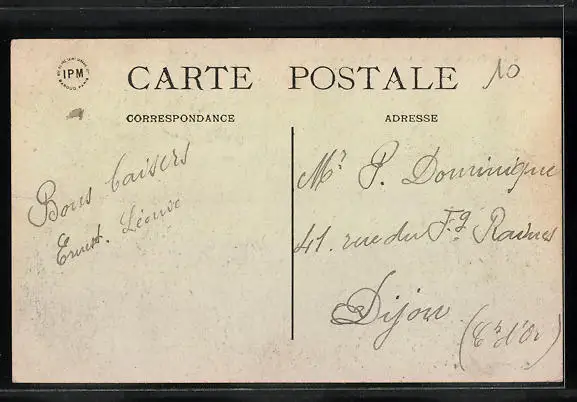 IPM
CARTE POSTALE
10
CORRESPONDANCE
ADRESSE
Bons baisers
Ernest.
Mr P. Dominique
41. rue du Fg Raines
Dijon
(Cte d'Or)